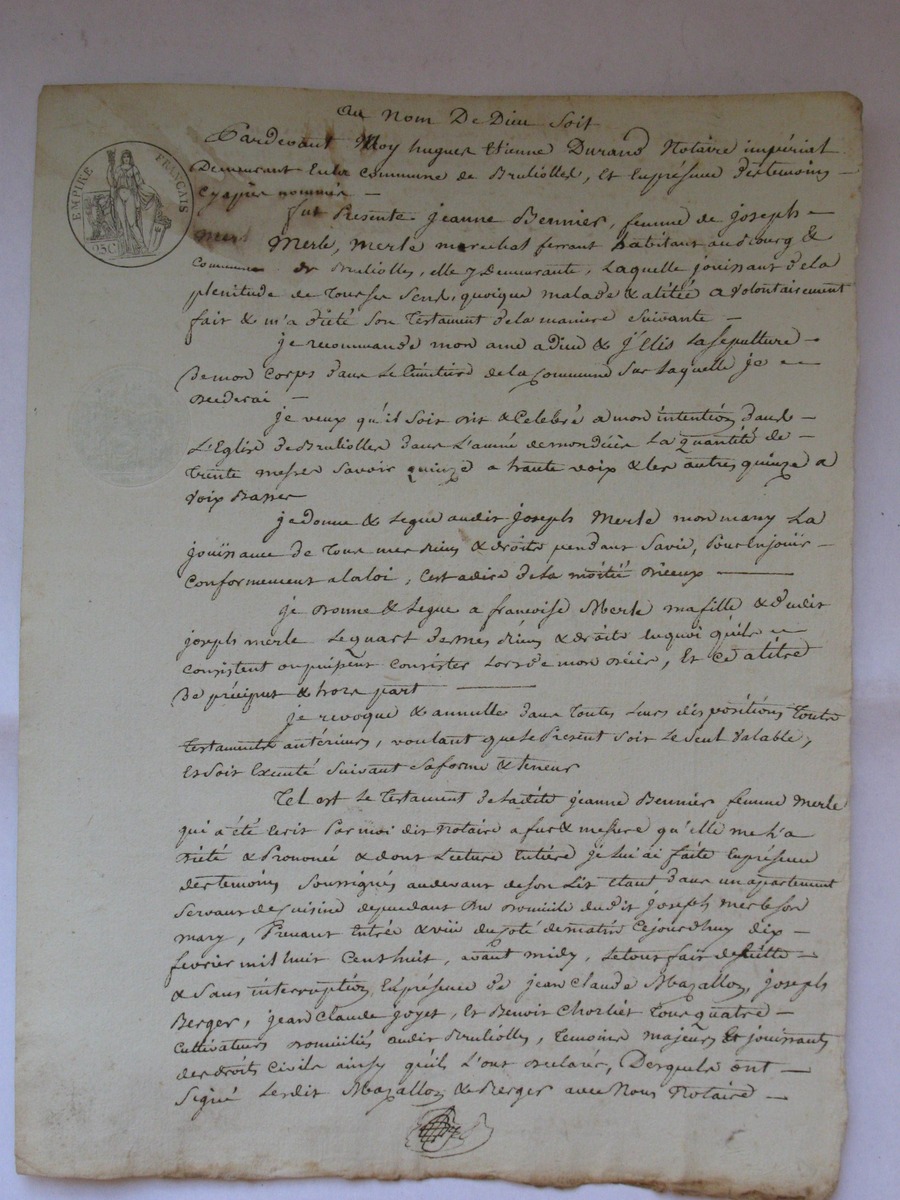 Au Nom De Dieu Soit
Pardevant Moy hugues Etienne Durand Notaire impérial
Demeurant En la Commune de Brulioles, et En présence des temoins
Cy après nommés —
fut Presente jeanne Bennier, femme de joseph
Merle, Merle marechal ferrant habitant au Bourg &
Commune de Brulioles, elle y Demeurante, Laquelle jouissant de la
plenitude de Tous ses Sens, quoique malade & alitée a volontairement
fait & m'a dicté Son Testament de la maniere Suivante —
je recommande mon ame a Dieu & j'Elis la Sepulture
De mon Corps dans Le Cimetiere de la Commune Sur Laquelle je
Decederai —
je veux qu'il Soit Dit & Celebré a mon intention dans
L'Eglise de Brulioles dans L'année de mon décès La quantité de
Trente messes Savoir quinze a haute voix & les autres quinze a
Voix Basses
je donne & Legue audit joseph Merle mon mary La
jouissance de Tous mes Biens & droits pendant Sa vie, Pour En jouir
Conformement a la loi, C'est a dire de La moitié D'iceux —
je Donne & Legue a francoise Merle ma fille & dudit
joseph merle Le quart de mes Biens & droits En quoi qu'ils
Consistent ou puissent Consister Lors de mon Décès, Et Ce a titre
De préciput & hors part —
je revoque & annulle dans Toutes Leurs dispositions Touts
Testaments antérieurs, voulant que le Present Soit Le Seul Valable,
Et Soit Executé Suivant Sa forme & teneur
Tel est Le Testament de Ladite jeanne Bennier femme Merle
qui a été Ecrit Par moi dit Notaire a fur & mesure qu'elle me L'a
Dicté & Prononcé & dont Lecture Entiere je Lui ai faite En présence
des temoins Soussignés au devant de Son Lit Etant dans un apartement
Servant de Cuisine dependant Du Domicile dudit joseph merle Son
mary, Prenant Entrée & vue du Coté de matin Cejourdhuy dix
fevrier mil huit Cent huit, avant midy, Le tout fait de Suitte
& Sans interruption En présence de jean Claude Mazallon, joseph
Berger, jean Claude joyet, Et Benoit Chorliet Tous quatre
Cultivateurs Domiciliés audit Brulioles, Temoins majeurs Et jouissants
des droits Civils ainsy qu'ils L'ont Déclaré, Desquels ont
Signé Lesdit Mazallon & Berger avec Nous Notaire —
EMPIRE FRANÇAIS
25C